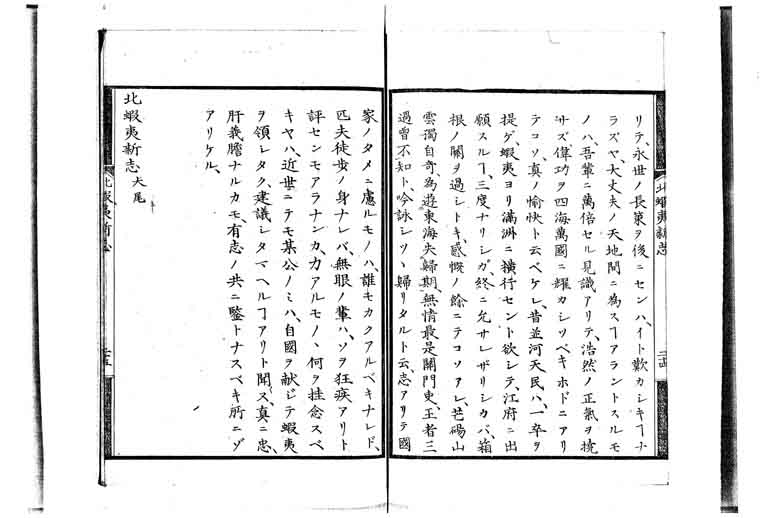 リテ、永世ノ長策ヲ後ニセンハ、イト歎カシキヿナ
ラズヤ、大丈夫ノ天地間ニ為スヿアラントスルモ
ノハ、吾輩ニ萬倍セル見識アリテ、浩然ノ正氣ヲ挽
サズ偉功ヲ四海萬國ニ耀カシツベキホドニアリ
テコソ、真ノ愉快ト云ベケレ、昔並河天民ハ、一卒ヲ
提ゲ、蝦夷ヨリ滿洲ニ横行セント欲シテ江府ニ出
願スルヿ、三度ナリシガ終ニ允サレザリシカバ、箱
根ノ關ヲ過シトキ、感慨ノ餘ニテコソアレ、芒碭山
雲濁自奇、為遊東海失歸期、無情最是關門吏、王者三
過曽不知ト、吟詠シツヽ歸リタルト云、志アリテ國
北蝦夷新志
二十四
家ノタメニ慮ルモノハ、誰モカクアルベキナレド、
匹夫徒歩ノ身ナレバ、無眼ノ輩ハ、ソヲ狂疾アリト
評センモアラナンカ、力アルモノヽ何ヲ挂念スベ
キヤハ、近世ニテモ某公ノミハ、自國ヲ献ジテ蝦夷
ヲ領レタク、建議シタマヘルヿアリト聞ス、真ニ忠
肝義膽ナルカモ、有志ノ共ニ鑒トナスベキ所ニゾ
アリケル、
北蝦夷新志大尾
北蝦夷新志
二十五